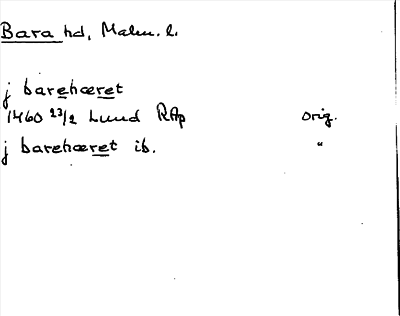 Bara hd, Malm. l.
j barehæret
1460 23/2 Lund RAp orig.
j barehæret ib. "